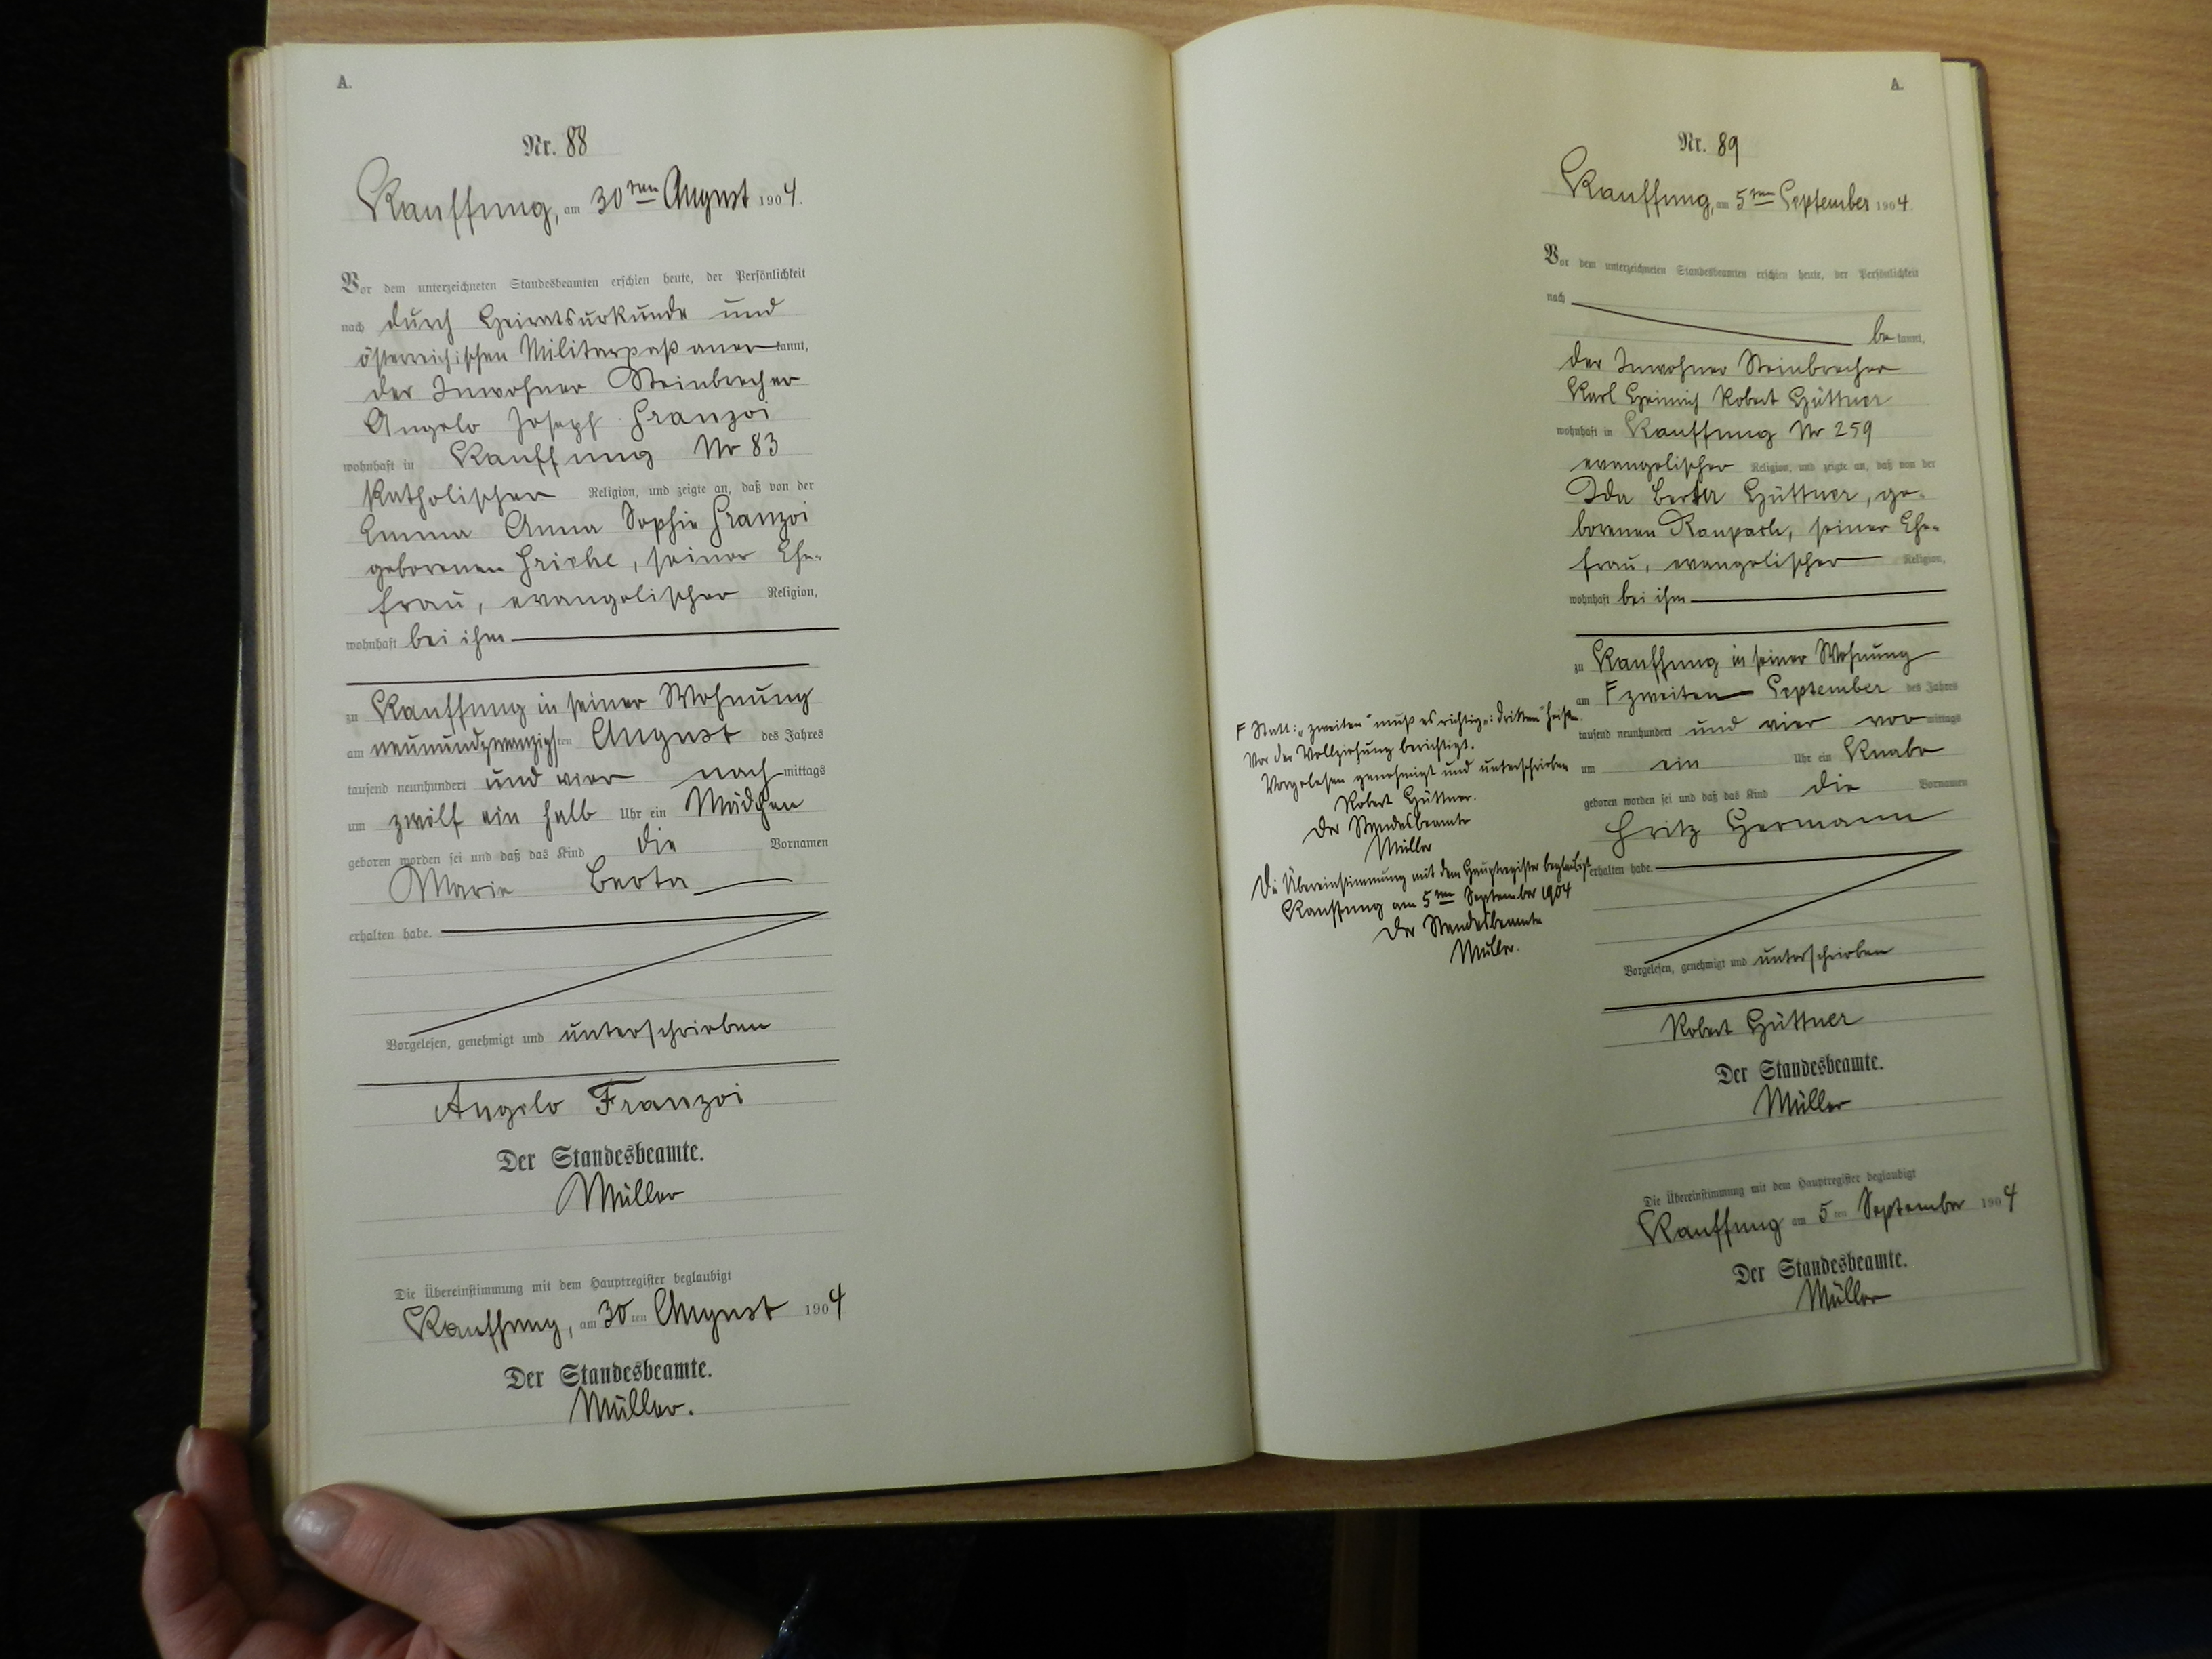 A.
Nr. 88
Kauffung, am 30ten August 1904.
Vor dem unterzeichneten Standesbeamten erschien heute, der Persönlichkeit
nach durch Heiratsurkunde und
österreichischen Militärpaß anerkannt,
der Inwohner Steinbrecher
Angelo Joseph Franzoi
wohnhaft in Kauffung Nr 83
katholischer Religion, und zeigte an, daß von der
Emma Anna Sophie Franzoi
geborenen, seiner Ehe-
frau, evangelischer Religion,
wohnhaft bei ihm
zu Kauffung in seiner Wohnung
am neunundzwanzigsten August des Jahres
tausend neunhundert und vier nachmittags
um zwölf ein halb Uhr ein Mädchen
geboren worden sei und daß das Kind die Vornamen
Marie Berta
erhalten habe.
Vorgelesen, genehmigt und unterschrieben
Angelo Franzoi
Der Standesbeamte.
Müller
Die Übereinstimmung mit dem Hauptregister beglaubigt
Kauffung, am 30ten August 1904
Der Standesbeamte.
Müller.
A.
Nr. 89
Kauffung, am 5ten September 1904.
Vor dem unterzeichneten Standesbeamten erschien heute, der Persönlichkeit
nach
bekannt,
der Inwohner Steinbrecher
Karl Heinrich Robert Hüttner
wohnhaft in Kauffung Nr 259
evangelischer Religion, und zeigte an, daß von der
Ida Berta Hüttner, ge-
borenen, seiner Ehe-
frau, evangelischer Religion,
wohnhaft bei ihm
zu Kauffung in seiner Wohnung
am F zweiten September des Jahres
tausend neunhundert und vier vormittags
um ein Uhr ein Knabe
geboren worden sei und daß das Kind die Vornamen
Fritz Hermann
erhalten habe.
Vorgelesen, genehmigt und unterschrieben
Robert Hüttner
Der Standesbeamte.
Müller
Die Übereinstimmung mit dem Hauptregister beglaubigt
Kauffung am 5ten September 1904
Der Standesbeamte.
Müller
F Statt: „zweiten" muß es richtig: „dritten" heißen
Vor der Vollziehung berichtigt.
Vorgelesen genehmigt und unterschrieben
Robert Hüttner.
Der Standesbeamte
Müller
Die Übereinstimmung mit dem Hauptregister beglaubigt
Kauffung am 5ten September 1904
Der Standesbeamte
Müller.